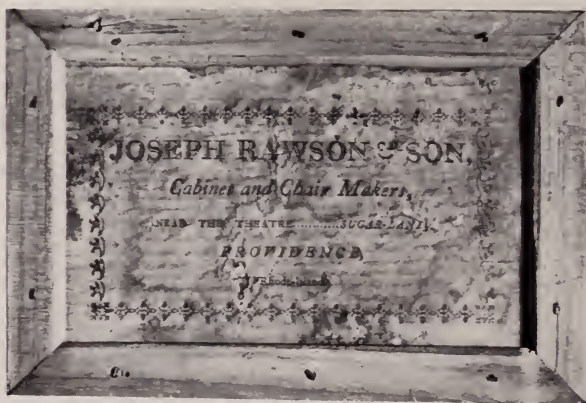 JOSEPH RAWSON & SON,
Cabinet and Chair Makers,
NEAR THE THEATRE..........SUGAR-LANE,
PROVIDENCE,